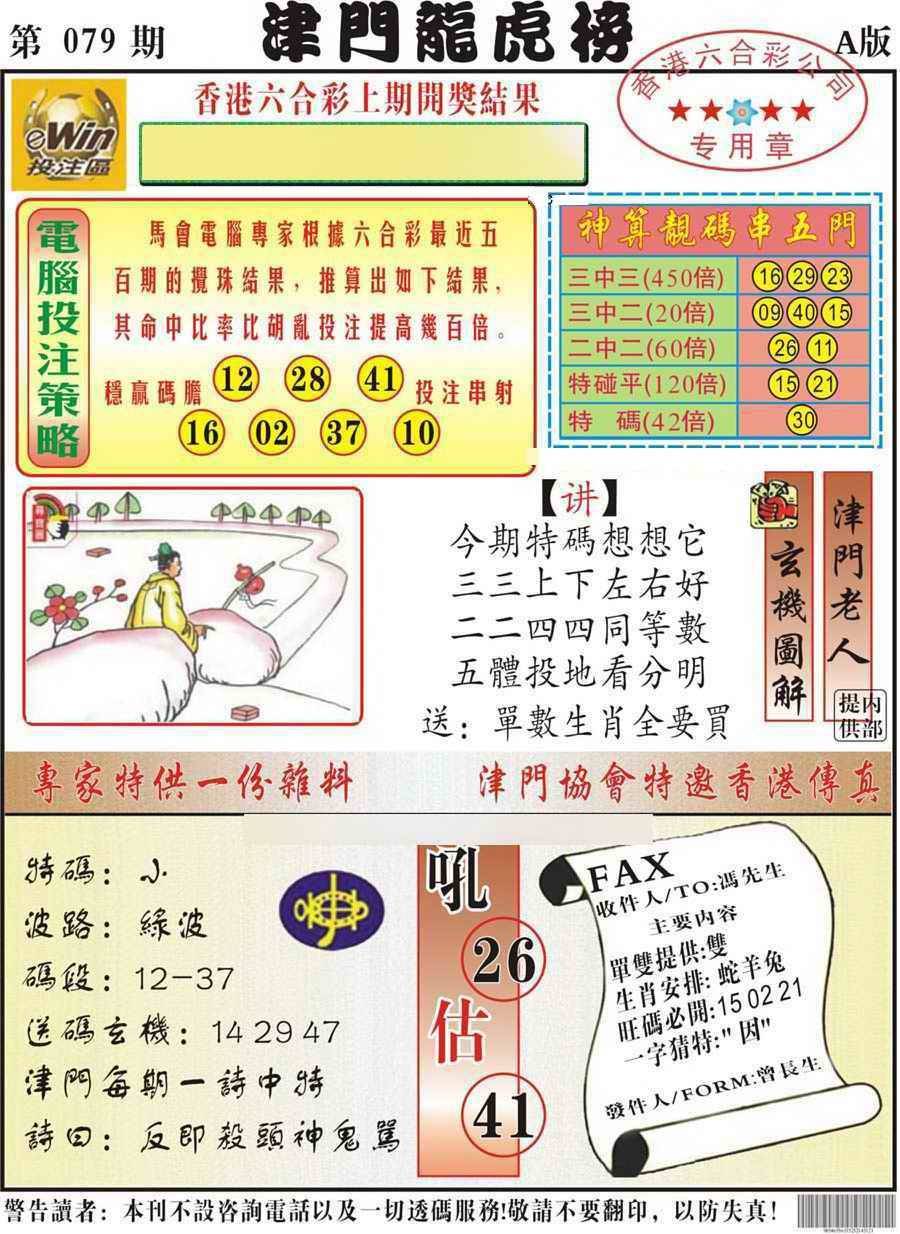 第 079 期
津門龍虎榜
A版
eWin
投注區
香港六合彩上期開獎結果
香港六合彩公司
专用章
電腦投注策略
馬會電腦專家根據六合彩最近五
百期的攪珠結果，推算出如下結果，
其命中比率比胡亂投注提高幾百倍。
穩贏碼膽 12 28 41 投注串射
16 02 37 10
神算靚碼串五門
三中三(450倍) 16 29 23
三中二(20倍) 09 40 15
二中二(60倍) 26 11
特碰平(120倍) 15 21
特 碼(42倍) 30
【讲】
今期特碼想想它
三三上下左右好
二二四四同等數
五體投地看分明
送：單數生肖全要買
玄機圖解
津門老人
内部提供
專家特供一份雜料
津門協會特邀香港傳真
特碼：小
波路：綠波
碼段：12－37
送碼玄機：14 29 47
津門每期一詩中特
詩曰：反即殺頭神鬼罵
吼
26
估
41
FAX
收件人/TO:馮先生
主要内容
單雙提供:雙
生肖安排: 蛇羊兔
旺碼必開:15 02 21
一字猜特:" 因"
發件人/FORM:曾長生
警告讀者：本刊不設咨詢電話以及一切透碼服務!敬請不要翻印，以防失真！